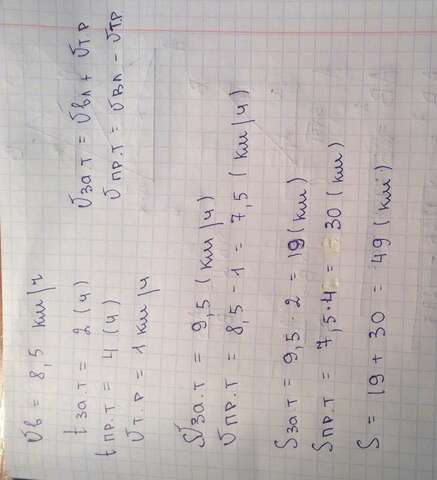 Ʋв = 8,5 км/ч
t за.т = 2 (ч)
t пр.т = 4 (ч)
Ʋт.р = 1 км/ч
Ʋза.т = Ʋвл + Ʋт.р
Ʋпр.т = Ʋвл - Ʋтр
Ʋза.т = 9,5 (км/ч)
Ʋпр.т = 8,5 - 1 = 7,5 (км/ч)
Sза.т = 9,5 · 2 = 19 (км)
Sпр.т = 7,5 · 4 = 30 (км)
S = 19 + 30 = 49 (км)